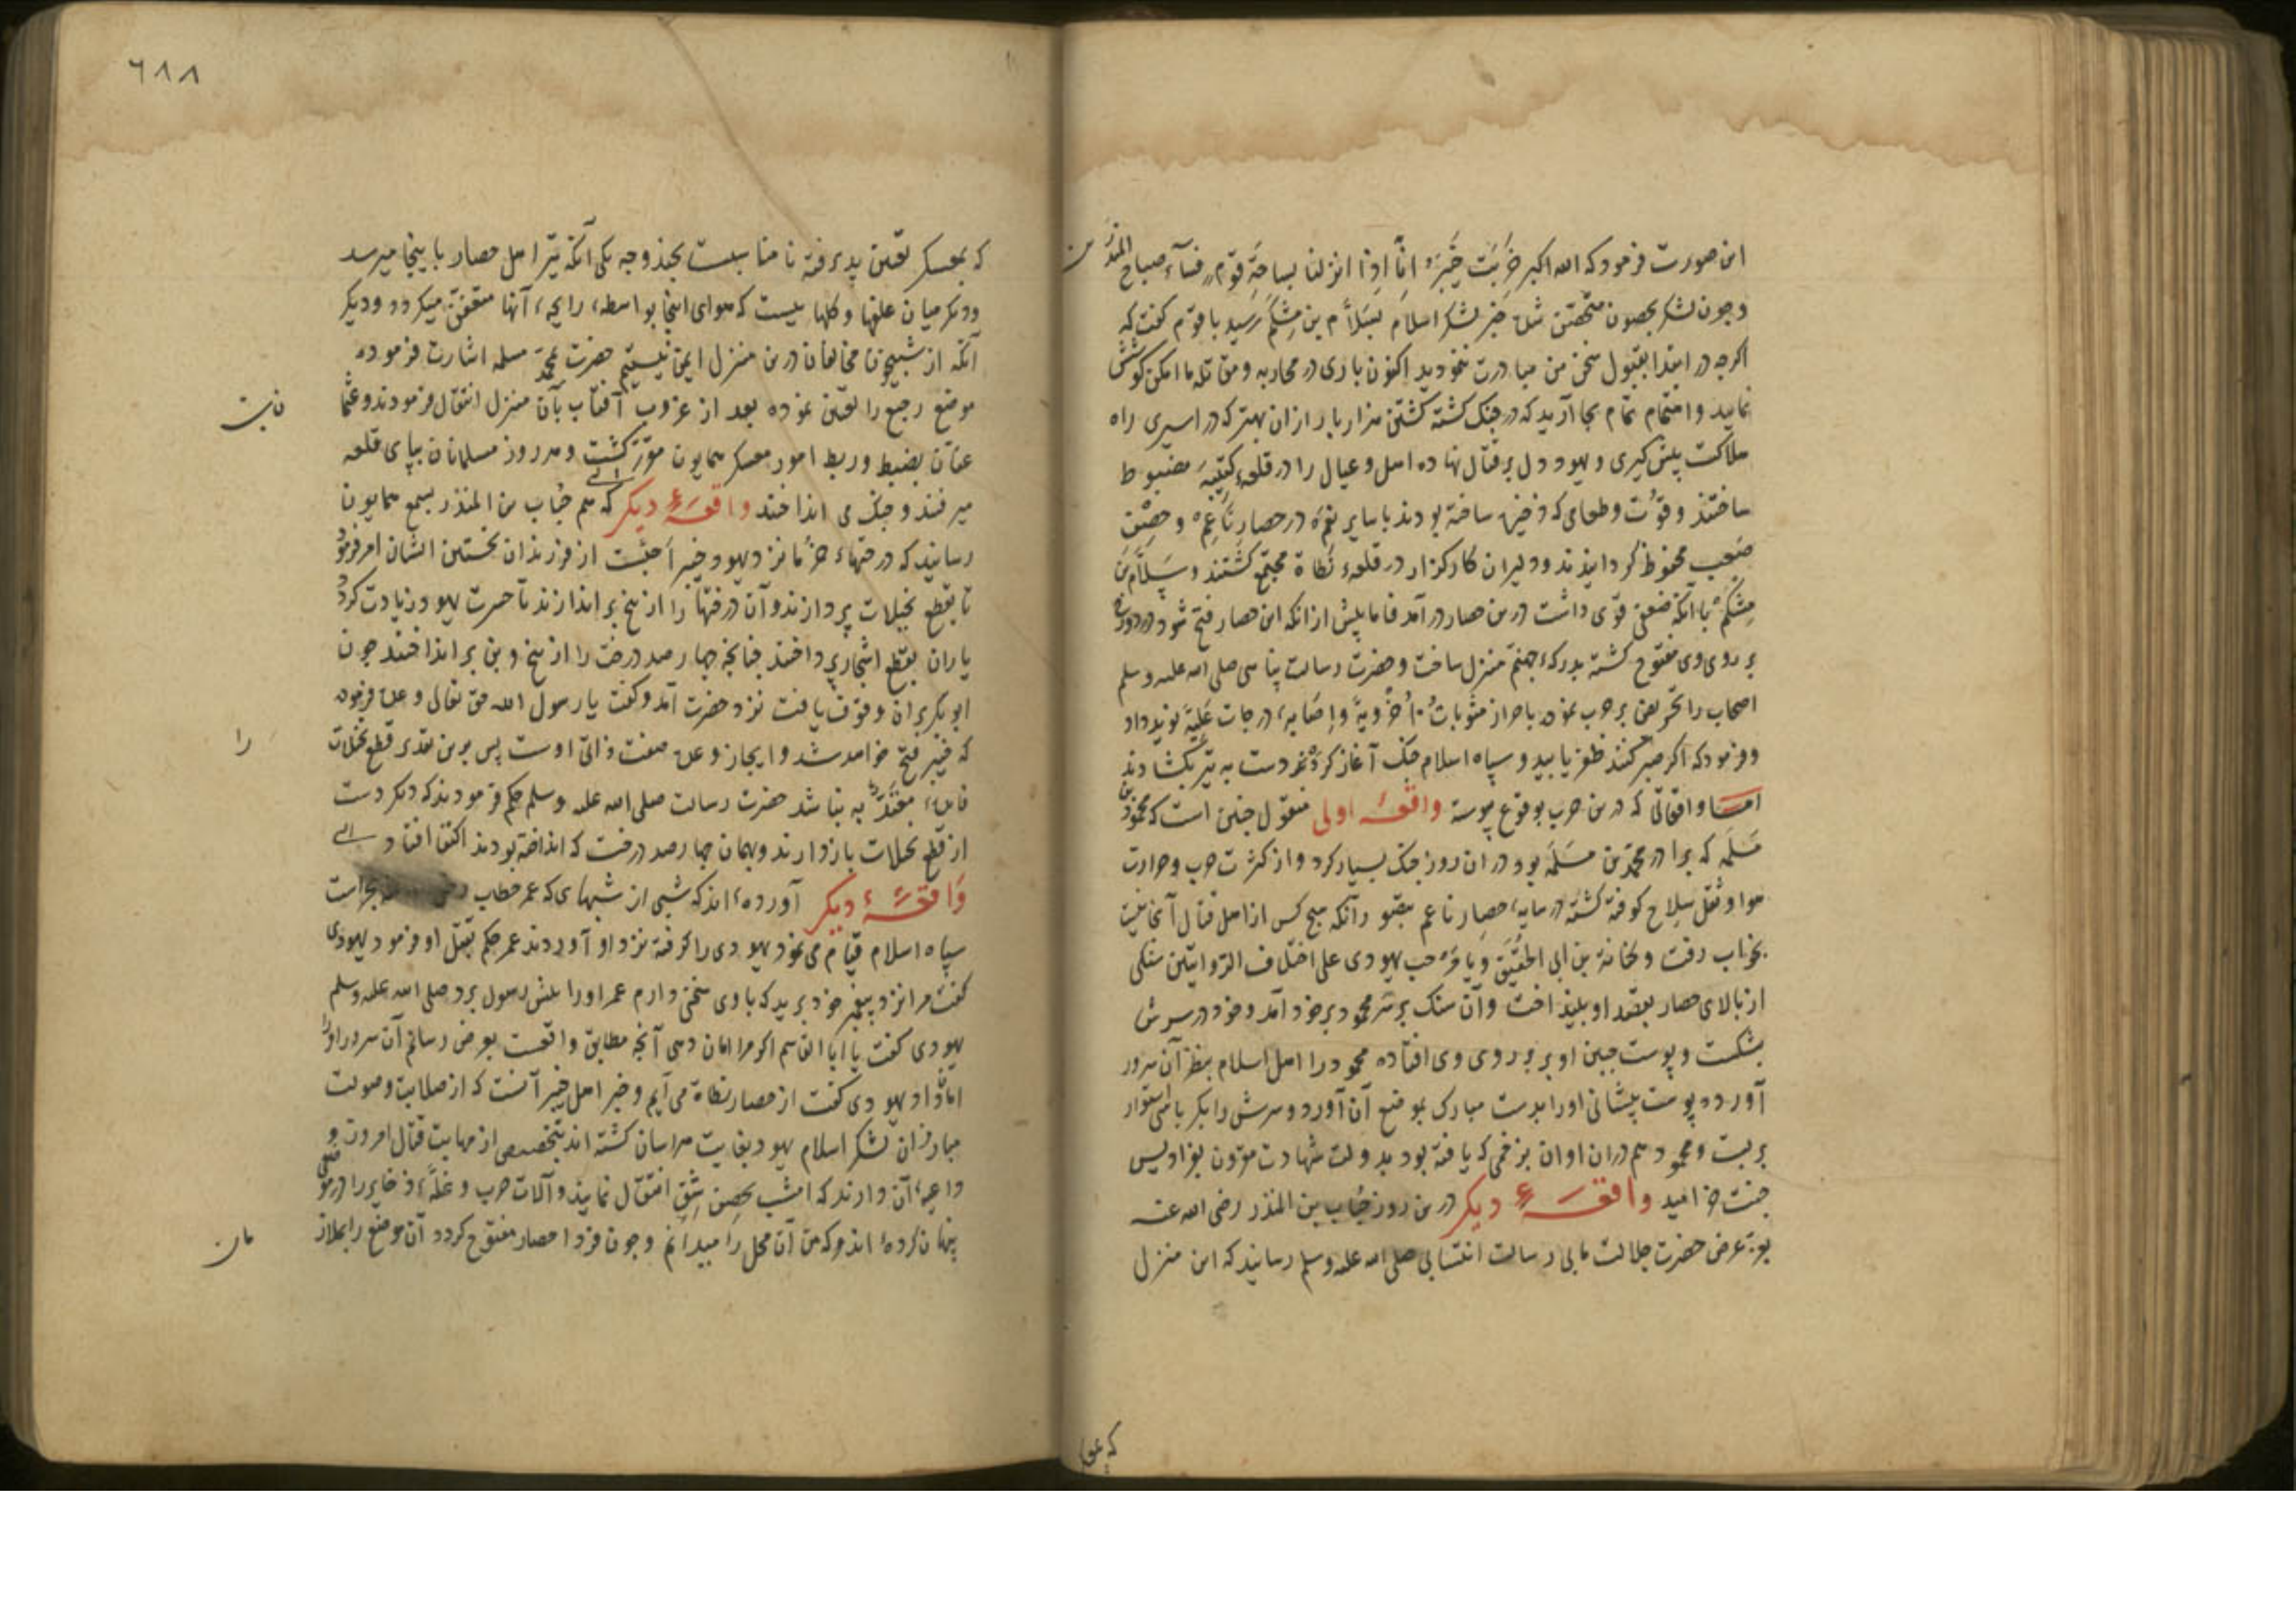 این صورت فرمود که الله اکبر خَرِبَت خَیْبَرُ اِنَّا اِذَا انزلنا بساحَةِ قَومٍ فسآءَ صباح المنذرین
و چون لشکر بحصون متحصّن شد خبر لشکر اسلام بسَلاّم بن مِشْکَم رسید با قوم گفت که
اگرچه در ابتدا بقبول سخن من مبادرت ننمودید اکنون باری در محاربه و مقاتله ما امکن کوشش
نمایید و اهتمام تمام بجا آرید که در جنک کشته کشتن هزار بار ازان بهتر که در اسیری راه
هلاکت پیش گیری و یهود دل بر قتال نهاده اهل و عیال را در قلعهٔ کتیبَه مضبوط
ساختند و قوُت و طعامی که ذخیره ساخته بودند با سایر در حصار نَاعِم و حِصْن
صَعب محفوظ کردانیدند و دلیران کارگزار در قلعهٔ نَطاة مجتمع کشتند و سَلاّم بن
مِشکَم با آنکه ضعفی قوی داشت درین حصار در آمد فاما پیش ازانکه این حصار فتح شود در دوزخ
بر روی وی مفتوح کشته بدرکهٔ جهنم منزل ساخت و حضرت رسالت پناهی صلی الله علیه وسلم
اصحاب را تحریض بر حرب نموده باحراز مثوبات اُخرُویة و اصابهٔ درجات عَلِیّة نوید داد
و فرمود که اگر صبر کنند ظفر یابید و سپاه اسلام جنک آغاز کرده دست به تیر بکشادند
امـا وقایعی که درین حرب بوقوع پیوسته واقعهٔ اولی منقول چنین است که محمود بن
مَسلَمَه که برادر محمّد بن مَسلَمَه بود در ان روز جنک بسیار کرد و از کثرت حرب و حرارت
هوا و ثقل سِلاح کوفته کشته در سایهٔ حصار ناعم بتصور آنکه هیچ کس از اهل قتال آنجا نیست
بخواب رفت و کنانة بن ابی الحُقَیق و یا مَرحب یهودی علی اختلاف الرّوایتین سنکی
از بالای حصار بقصد او بلیند اخت و آن سنک بر سر محمود بر خود آمد و خود در سرش
بشکست و پوست جبین او بر روی وی افتاده محمود را اهل اسلام بنظر آن سرور
آورده پوست پیشانی او را بدست مبارک بموضع آن آورد و سرش را بکرباسی استوار
بربست و محمود هم دران اوان بزخمی که یافته بود بدولت شهادت مقرون بفرادیس
جنت خرامید واقعـهٔ دیکر درین روز حُباب بن المنذر رضی الله عنه
بموقف عرض حضرت جلالت مابی رسالت انتسابی صلی الله علیه وسلم رسانید که این منزل
که بمعسکر
٦٨٨
که بمعسکر تعیین پذیرفته نامناسبست بچند وجه یکی آنکه تیر اهل حصار باینجا میرسد
و دیکر میان علفها و کلهاییست که هوای اینجا بواسطهٔ رایحهٔ آنها متعفن میکردد و دیکر
آنکه از شبیخون مخالفان درین منزل ایمن نیستیم حضرت محمّد مسلمه اشارت فرموده
موضع رجیع را تعیین نموده بعد از غروب آفتاب بآن منزل انتقال فرمودند و عثمان
عفان بضبط و ربط امور معسکر همایون مؤتمر کشت و هر روز مسلمانان بپای قلعه
میرفتند و جنک می انداختند واقعهٔ دیکر که هم حُباب بن المنذر بسمع همایون
رسانید که درختهاء خرما نزد یهود خیبر اَحبّست از فرزندان نخستین ایشان امر فرمود
تا بقطع نخیلات پردازند و آن درختها را از بیخ براندازند تا حسرت یهود زیادت کردد
یاران بقطع اشجار پرداختند چنانچه چهار صد درخت را از بیخ و بن برانداختند چون
ابوبکر بران وقوف یافت نزد حضرت آمد و کفت یا رسول الله حق تعالی وعده فرموده
که خیبر فتح خواهد شد و ایجاز وعده صفت ذاتی اوست پس برین تقدیر قطع نخلات را
فایدهٔ معتدّ به نباشد حضرت رسالت صلی الله علیه وسلم حکم فرمودند که دیکر دست
از قطع نخلات بازدارند و بهمان چهار صد درخت که انداخته بودند اکتفا افتاد
واقعـهٔ دیکر آورده‌اند که شبی از شبهایی که عمر خطاب بحراست
سپاه اسلام قیام می نمود یهودی را گرفته نزد او آوردند عمر حکم بقتل او فرمود یهودی
کفت مرا نزد پیغمبر خود برید که با وی سخنی دارم عمر او را پیش رسول برد صلی الله علیه وسلم
یهودی کفت یا ابا القاسم اگر مرا امان دهی آنچه مطابق واقعست بعرض رسانم آن سرور او را
امان داد یهودی کفت از حصار نطاة می آیم و خبر اهل خیبر آنست که از صلابت و صولت
مبارزان لشکر اسلام یهود بغایت هراسان کشته اند بتخصیص از مهابت قتال امروز و
داعیهٔ آن دارند که امشب بحصن شِق انتقال نمایند و آلات حرب و غلّه و ذخایر را در موضعی
پنهان کرده‌اند و که من آن محل را میدانم و چون فردا حصار مفتوح کردد آن موضع را بملازمان